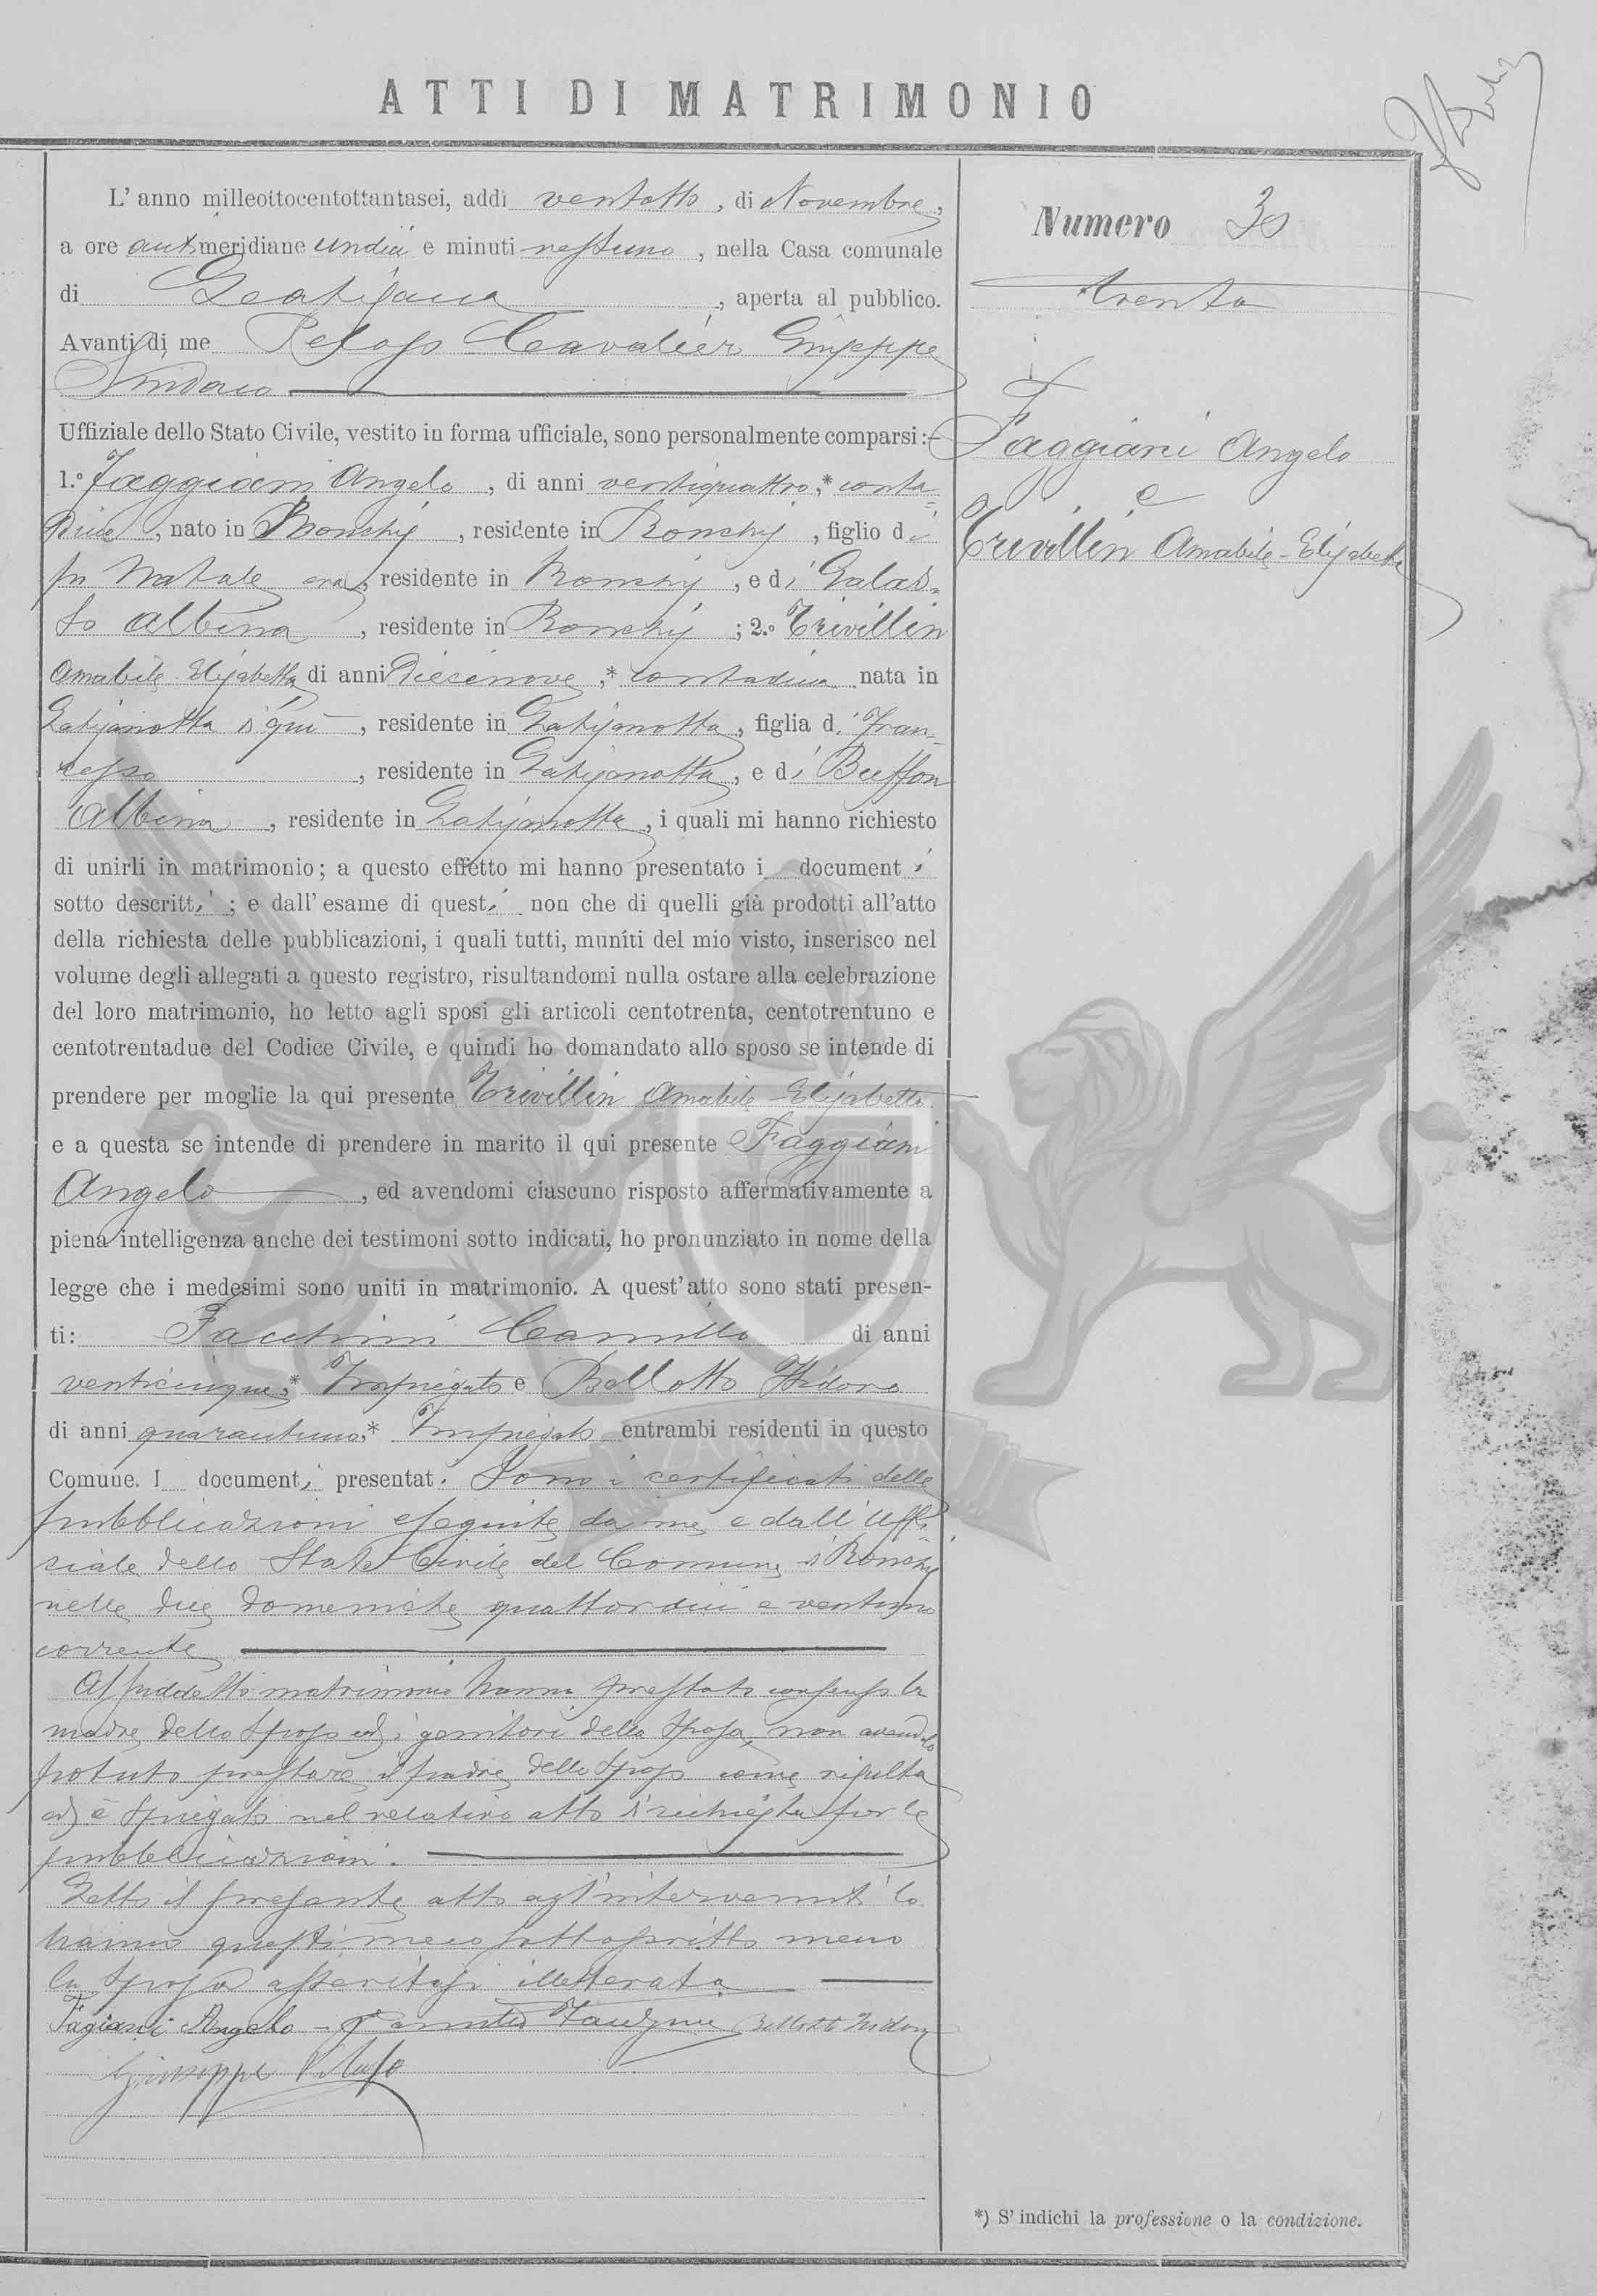 ATTI DI MATRIMONIO
L' anno milleottocentottantasei, addì ventotto, di Novembre,
a ore antimeridiane undici e minuti nessuno, nella Casa comunale
di , aperta al pubblico.
Avanti di me Peloso Cavalier Giuseppe
Sindaco
Uffiziale dello Stato Civile, vestito in forma ufficiale, sono personalmente comparsi:
1.° Faggiani Angelo, di anni ventiquattro,* conta
dino, nato in Ronchis, residente in Ronchis, figlio di
fu Natale era, residente in Ronchis, e di Galas=
so Albina, residente in Ronchis; 2.° Trivillin
Amabile Elisabetta di anni diecinove,* contadina nata in
Latisanotta di qui, residente in Latisanotta, figlia di Fran=
cesco, residente in Latisanotta, e di Buffon
Albina, residente in Latisanotta, i quali mi hanno richiesto
di unirli in matrimonio; a questo effetto mi hanno presentato i documenti
sotto descritti; e dall' esame di questi non che di quelli già prodotti all'atto
della richiesta delle pubblicazioni, i quali tutti, muniti del mio visto, inserisco nel
volume degli allegati a questo registro, risultandomi nulla ostare alla celebrazione
del loro matrimonio, ho letto agli sposi gli articoli centotrenta, centotrentuno e
centotrentadue del Codice Civile, e quindi ho domandato allo sposo se intende di
prendere per moglie la qui presente Trivillin Amabile Elisabetta
e a questa se intende di prendere in marito il qui presente Faggiani
Angelo, ed avendomi ciascuno risposto affermativamente a
piena intelligenza anche dei testimoni sotto indicati, ho pronunziato in nome della
legge che i medesimi sono uniti in matrimonio. A quest' atto sono stati presen-
ti: Facchini Camillo di anni
venticinque,* Impiegato e Bellotto Isidoro
di anni quarantuno,* Impiegato entrambi residenti in questo
Comune. I documenti presentati sono i certificati delle
pubblicazioni eseguite da me e dall' Uffi=
ciale dello Stato Civile del Comune di Ronchis
nelle due domeniche quattordici e ventuno
corrente
Al suddetto matrimonio hanno prestato consenso la
madre dello sposo ed i genitori della sposa, non avendolo
potuto prestare il padre dello sposo come risulta
ed è spiegato nel relativo atto di richiesta per le
pubblicazioni.
Letto il presente atto agl'intervenuti lo
hanno questi meco sottoscritto meno
la sposa asseritasi illetterata
Fagiani Angelo - Camillo Bellotto Isidoro
Giuseppe Peloso
Numero 30
trenta
Faggiani Angelo
e
Trivillin Amabile-Elisabetta
*) S' indichi la professione o la condizione.